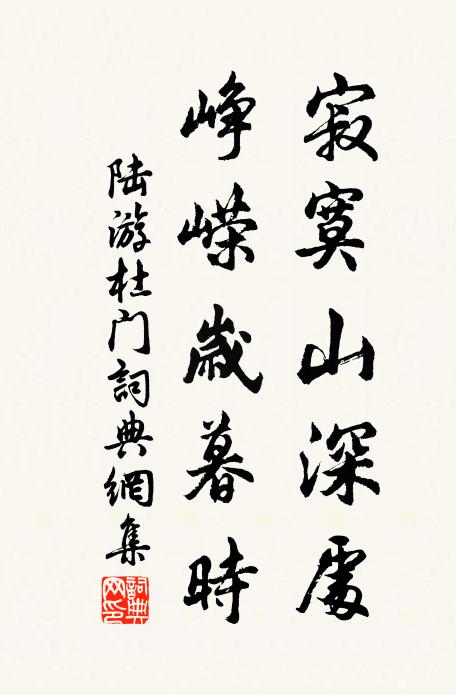 寂寞山深處
峥嶸歲暮時
陆游杜门詞典網集
詞典网印